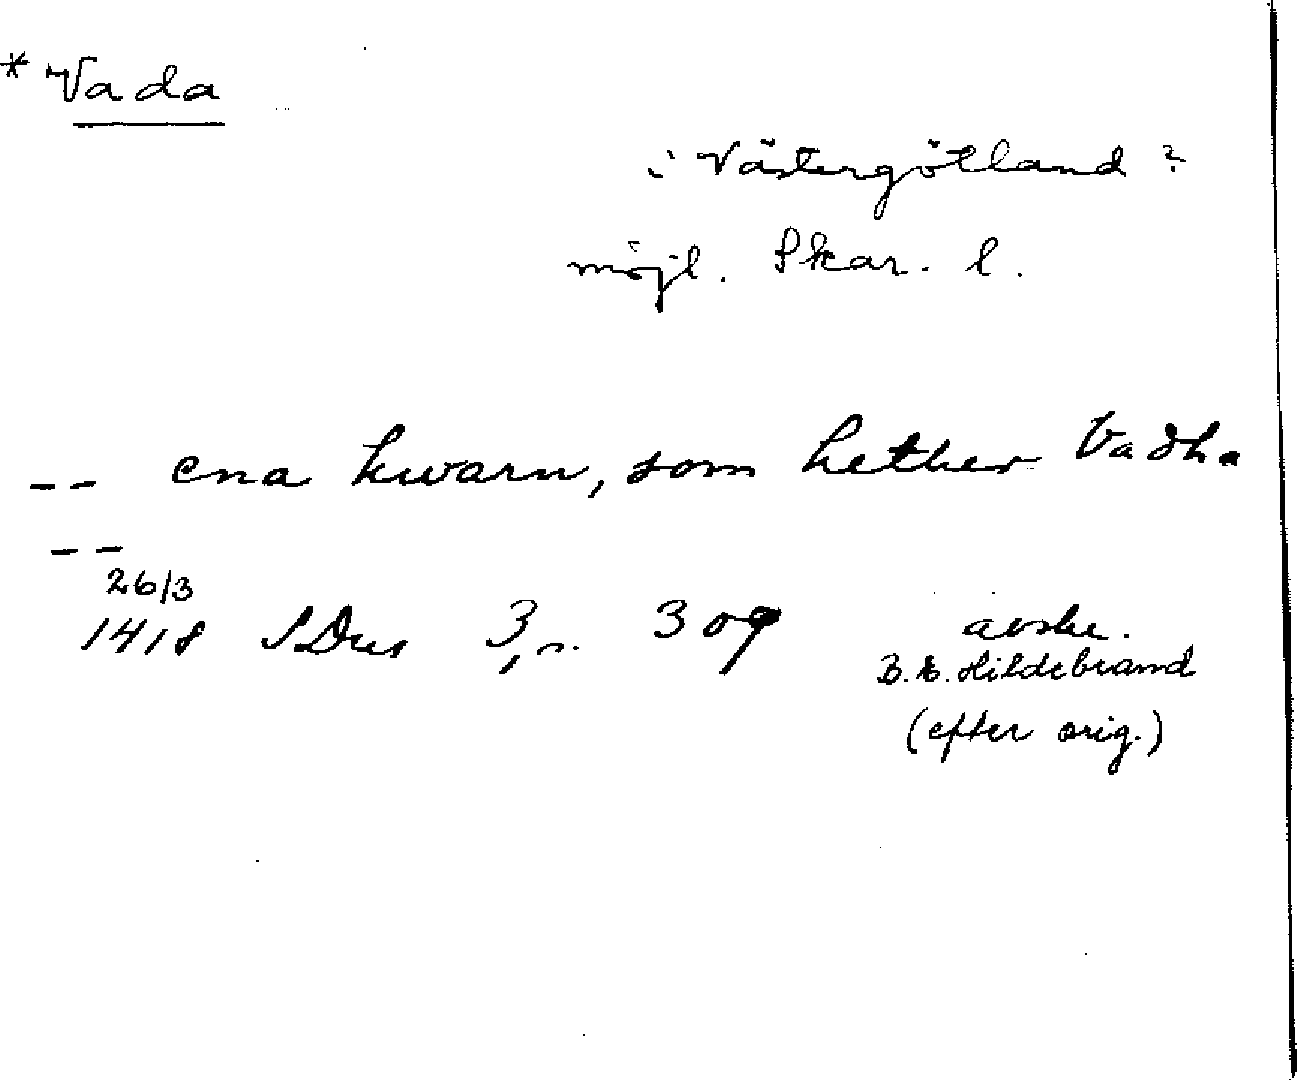 * Vada
i Västergötland ?
möjl. Skar. l.
-- ena kwarn, som hether Vadha
--
26/3
1418 SDns 3, s. 309 avskr.
B. E. Hildebrand
(efter orig.)